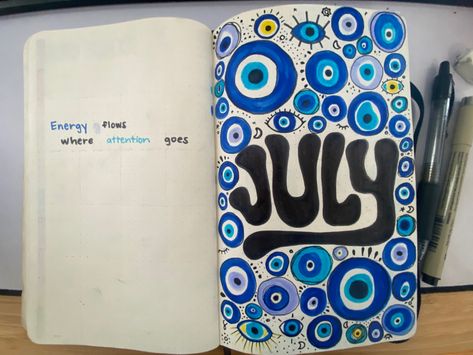 Energy flows
where attention goes
JULY